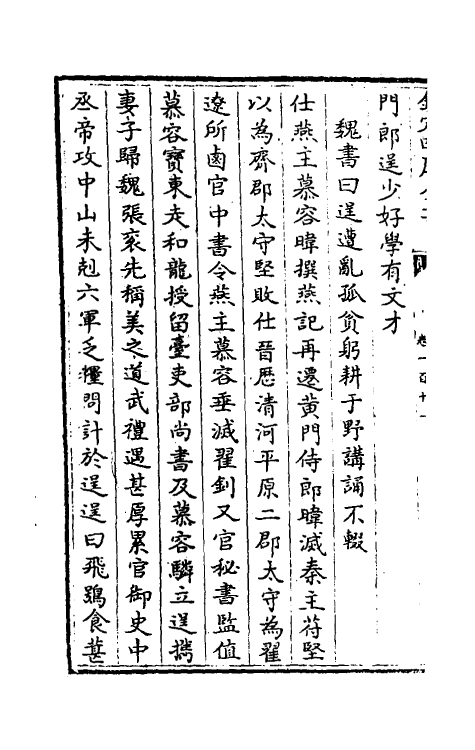 門郎逞少好學有文才
魏書曰逞遭亂孤貧躬耕于野講誦不輟
仕燕主慕容暐撰燕記再遷黃門侍郎暐滅秦主苻堅
以為齊郡太守堅敗仕晉歴清河平原二郡太守為翟
遼所鹵官中書令燕主慕容垂滅翟釗又官秘書監值
慕容寶東走和龍授留臺吏部尚書及慕容驎立逞攜
妻子歸魏張衮先稱美之道武禮遇甚厚累官御史中
丞帝攻中山未尅六軍乏糧問計於逞逞曰飛鴞食葚